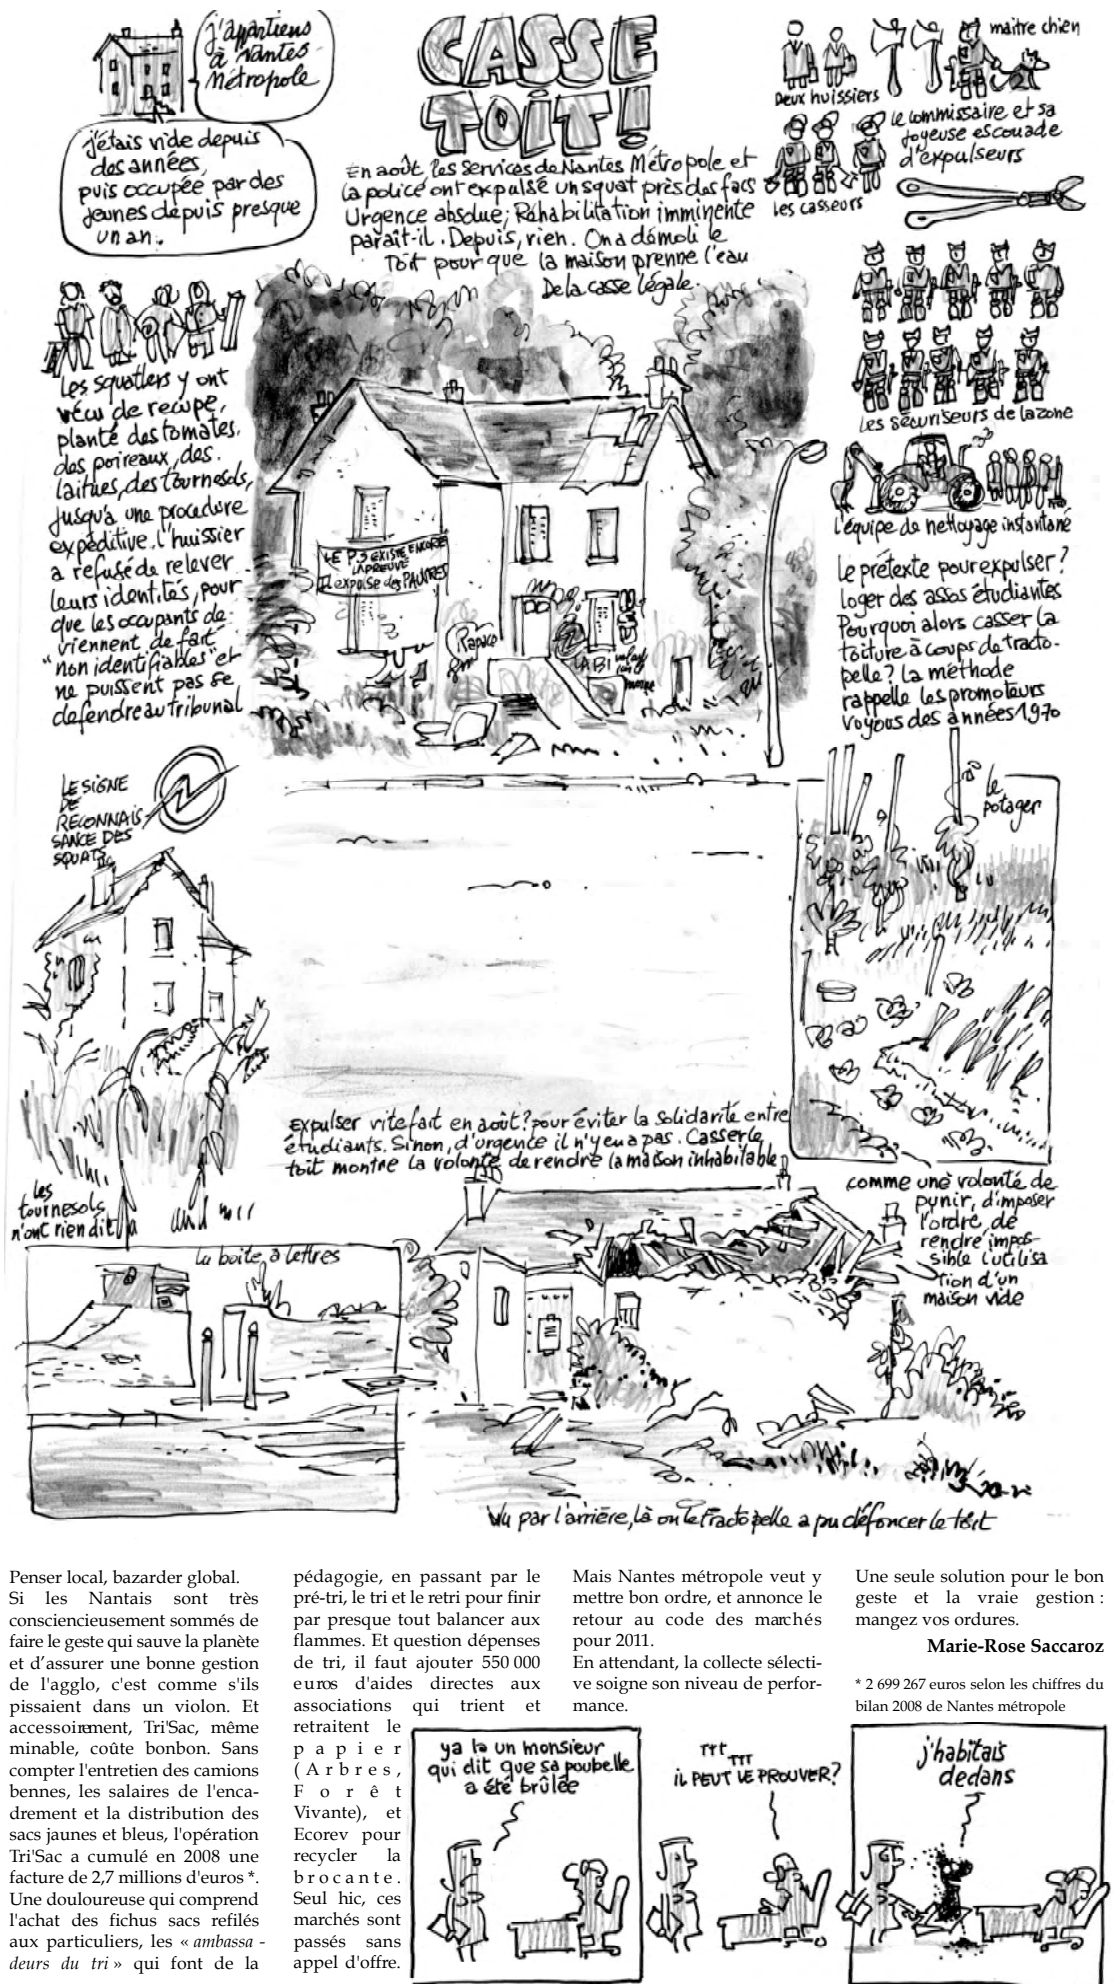 j'appartiens
à Nantes
Métropole
j'étais vide depuis
des années,
puis occupée par des
jeunes depuis presque
un an.
CASSE
TOIT!
En août, les services de Nantes Métropole et
la police ont expulsé un squat près des facs
Urgence absolue; Réhabilitation imminente
paraît-il. Depuis, rien. On a démoli le
toit pour que la maison prenne l'eau
De la casse légale.
Deux huissiers
maitre chien
le commissaire et sa
joyeuse escouade
d'expulseurs
les casseurs
Les sécuriseurs de la zone
l'équipe de nettoyage instantané
Les squatters y ont
vécu de récupe,
planté des tomates,
des poireaux, des
laitues, des tournesols,
jusqu'à une procédure
expéditive. l'huissier
a refusé de relever
leurs identités, pour
que les occupants de-
viennent de fait
"non identifiables" et
ne puissent pas se
defendre au tribunal
LE PS EXISTE ENCORE
LA PREUVE
IL expulse des PAUVRES
Rapace
Le prétexte pour expulser?
loger des assos étudiantes
Pourquoi alors casser la
toiture à coups de tracto-
pelle? La méthode
rappelle les promoteurs
voyous des années 1970
LE SIGNE
DE
RECONNAIS
SANCE DES
SQUATS
le
potager
les
tournesols
n'ont rien dit
expulser vite fait en août? pour éviter la solidarité entre
étudiants. Sinon, d'urgence il n'y en a pas. Casser le
toit montre la volonté de rendre la maison inhabitable
comme une volonté de
punir, d'imposer
l'ordre, de
rendre impos-
sible l'utilisa
tion d'un
maison vide
La boite à lettres
Vu par l'arrière, là où le tractopelle a pu défoncer le toit
Penser local, bazarder global.
Si les Nantais sont très
consciencieusement sommés de
faire le geste qui sauve la planète
et d'assurer une bonne gestion
de l'agglo, c'est comme s'ils
pissaient dans un violon. Et
accessoirement, Tri'Sac, même
minable, coûte bonbon. Sans
compter l'entretien des camions
bennes, les salaires de l'enca-
drement et la distribution des
sacs jaunes et bleus, l'opération
Tri'Sac a cumulé en 2008 une
facture de 2,7 millions d'euros *.
Une douloureuse qui comprend
l'achat des fichus sacs refilés
aux particuliers, les « ambassa -
deurs du tri » qui font de la
pédagogie, en passant par le
pré-tri, le tri et le retri pour finir
par presque tout balancer aux
flammes. Et question dépenses
de tri, il faut ajouter 550 000
euros d'aides directes aux
associations qui trient et
retraitent le
papier
(Arbres,
Forêt
Vivante), et
Ecorev pour
recycler la
brocante.
Seul hic, ces
marchés sont
passés sans
appel d'offre.
Mais Nantes métropole veut y
mettre bon ordre, et annonce le
retour au code des marchés
pour 2011.
En attendant, la collecte sélecti-
ve soigne son niveau de perfor-
mance.
Une seule solution pour le bon
geste et la vraie gestion :
mangez vos ordures.
Marie-Rose Saccaroz
* 2 699 267 euros selon les chiffres du
bilan 2008 de Nantes métropole
ya la un monsieur
qui dit que sa poubelle
a été brûlée
TTT
TTT
IL PEUT LE PROUVER?
j'habitais
dedans